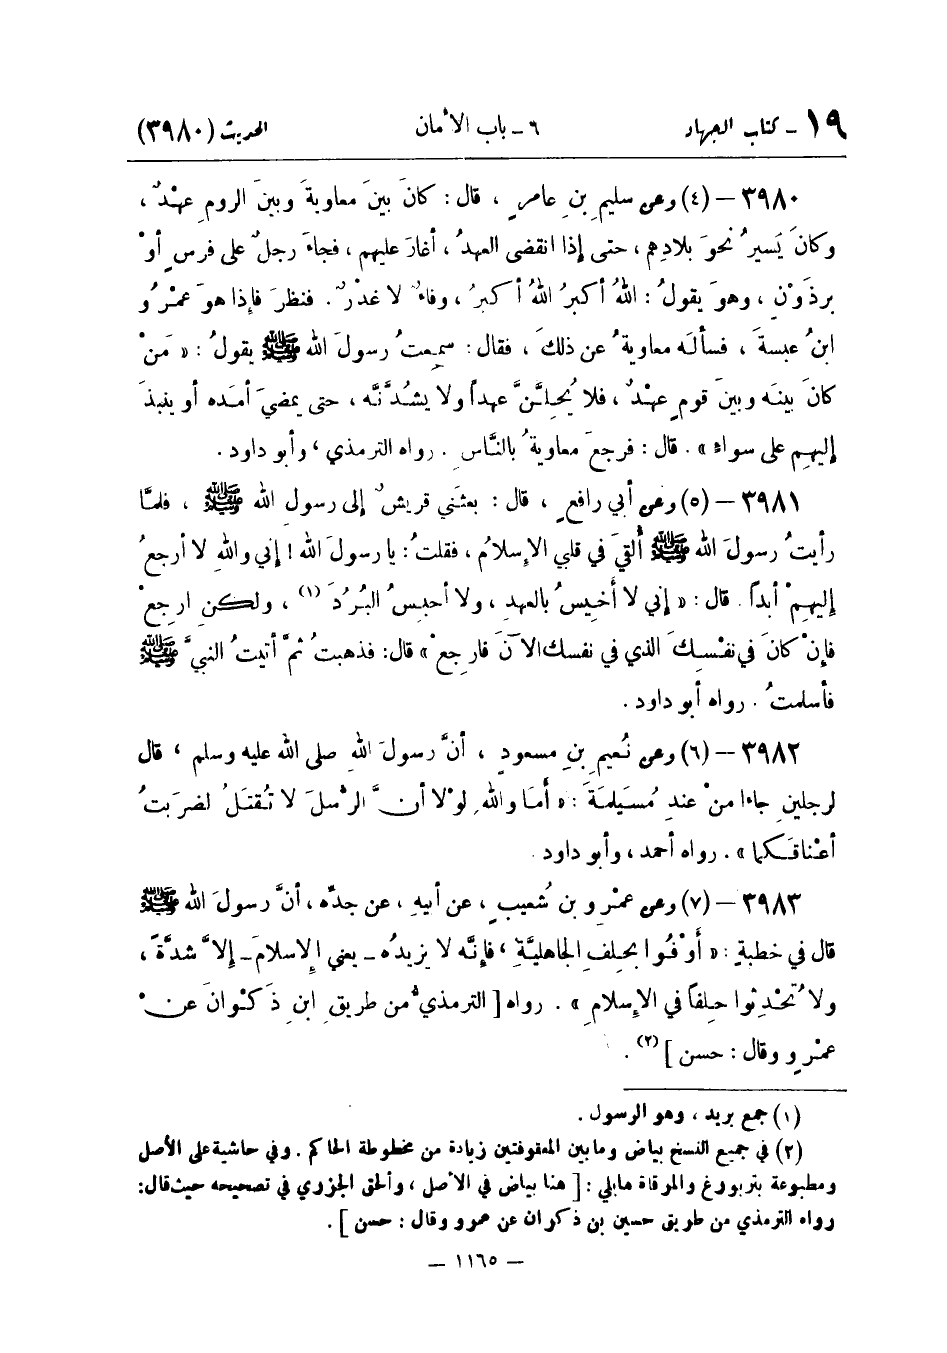 ١٩ ـ كتاب الجهاد ٦ ـ باب الأمان الحديث (٣٩٨٠)
٣٩٨٠ – (٤) وعن سليمِ بنِ عامرٍ ، قال : كانَ بينَ معاويةَ وبينَ الرومِ عهْدٌ ،
وكانَ يَسيرُ نحوَ بلادِهم ، حتى إذا انقضى العهدُ ، أغارَ عليهم ، فجاءَ رجلٌ على فرسٍ أوْ
برذَوْنٍ ، وهوَ يقولُ : اللهُ أكبرُ اللهُ أكبرُ ، وفاءٌ لا غدْرٌ . فنظرَ فإذا هوَ عمْرُو
ابنُ عبسةَ ، فسألَه معاويةُ عن ذلكَ ، فقال : سمِعتُ رسولَ الله ﷺ يقولُ : « مَنْ
كانَ بينَه وبينَ قومٍ عهْدٌ ، فلا يُحِلَّنَّ عهداً ولا يشُدَّنَّه ، حتى يمضيَ أمَده أو ينبذَ
إليهِم على سواءٍ » . قال : فرجعَ معاويةُ بالنَّاسِ . رواه الترمذي ، وأبو داود .
٣٩٨١ – (٥) وعن أبي رافعٍ ، قال : بعثَني قريشٌ إلى رسولِ الله ﷺ ، فلمَّا
رأيتُ رسولَ الله ﷺ أُلقيَ في قلبي الإِسلامُ ، فقلتُ : يا رسولَ الله ! إني واللهِ لا أرجعُ
إليهِمْ أبداً . قال : « إني لا أَخيسُ بالعهدِ ، ولا أحبِسُ البُرُدَ (١) ، ولكنِ ارجعْ
فإنْ كانَ في نفْسِكَ الذي في نفسك الآنَ فارجعْ » قال : فذهبتُ ثمَّ أتيتُ النبيَّ ﷺ
فأسلمتُ . رواه أبو داود .
٣٩٨٢ – (٦) وعن نُعيمِ بنِ مسعودٍ ، أنَّ رسولَ اللهِ صلى الله عليه وسلم ، قال
لرجلينِ جاءا منْ عندِ مُسَيلمَةَ : « أمَا واللهِ لوْلا أنَّ الرُّسلَ لا تُقتَلُ لضرَبتُ
أعْناقَكما » . رواه أحمد ، وأبو داود .
٣٩٨٣ – (٧) وعن عمْرِو بن شُعيبٍ ، عن أبيهِ ، عن جدِّه ، أنَّ رسولَ الله ﷺ
قال في خطبةٍ : « أوْفُوا بحِلفِ الجاهليَّةِ ، فإنَّه لا يزيدُه ـ يعني الإِسلامَ ـ إلاَّ شدَّةً ،
ولا تُحْدِثوا حِلفاً في الإِسلامِ » . رواه [ الترمذيُّ من طريقِ ابنِ ذَكْوانَ عنْ
عمْرٍو وقال : حسن ] (٢) .
(١) جمع بريد ، وهو الرسول .
(٢) في جميع النسخ بياض وما بين المعقوفتين زيادة من مخطوطة الحاكم . وفي حاشية على الأصل
ومطبوعة بتربورغ والمرقاة مايلي : [ هنا بياض في الأصل ، وألحق الجزري في تصحيحه حيث قال :
رواه الترمذي من طريق حسين بن ذكوان عن عمرو وقال : حسن ] .
– ١١٦٥ –